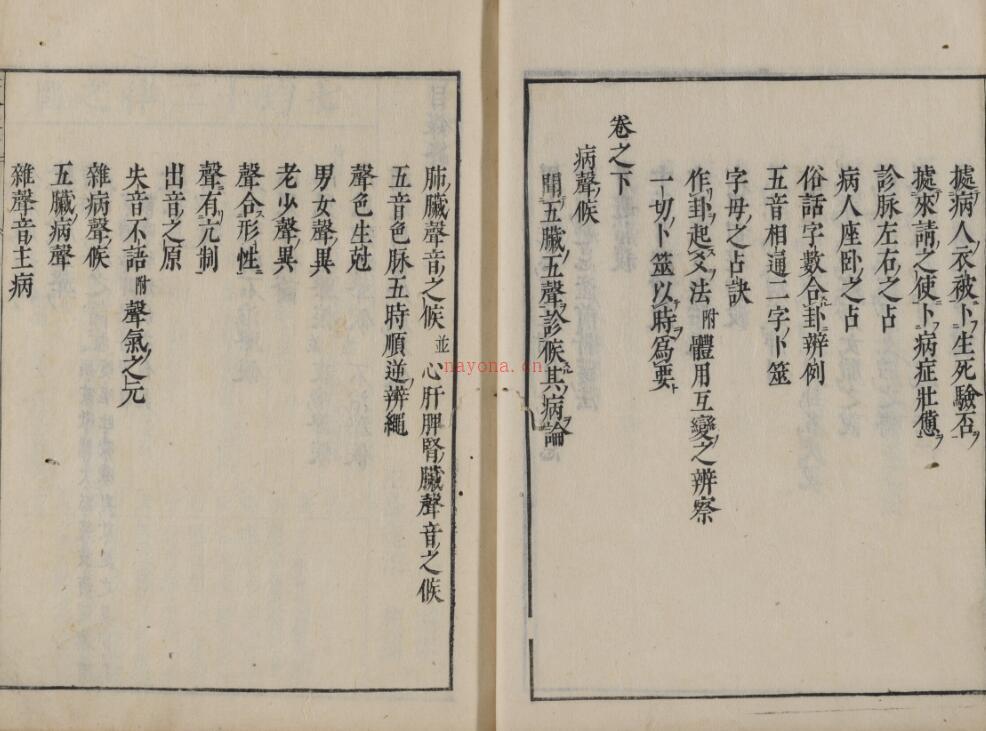 據病人衣被卜生死驗否
據來請之使卜病症壯憊
診脉左右之占
病人座卧之占
俗話字數合卦辨例
五音相通二字卜筮
字母之占訣
作卦起爻法附體用互變之辨察
一切卜筮以時爲要
卷之下
病聲候
聞五臟五聲診候其病論
肺臟聲音之候並心肝脾腎臟聲音之候
五音色脉五時順逆辨繩
聲色生尅
男女聲異
老少聲異
聲合形性
聲有亢制
出音之原
失音不語附聲氣之元
雜病聲候
五臟病聲
雜聲音主病
nayona.cn